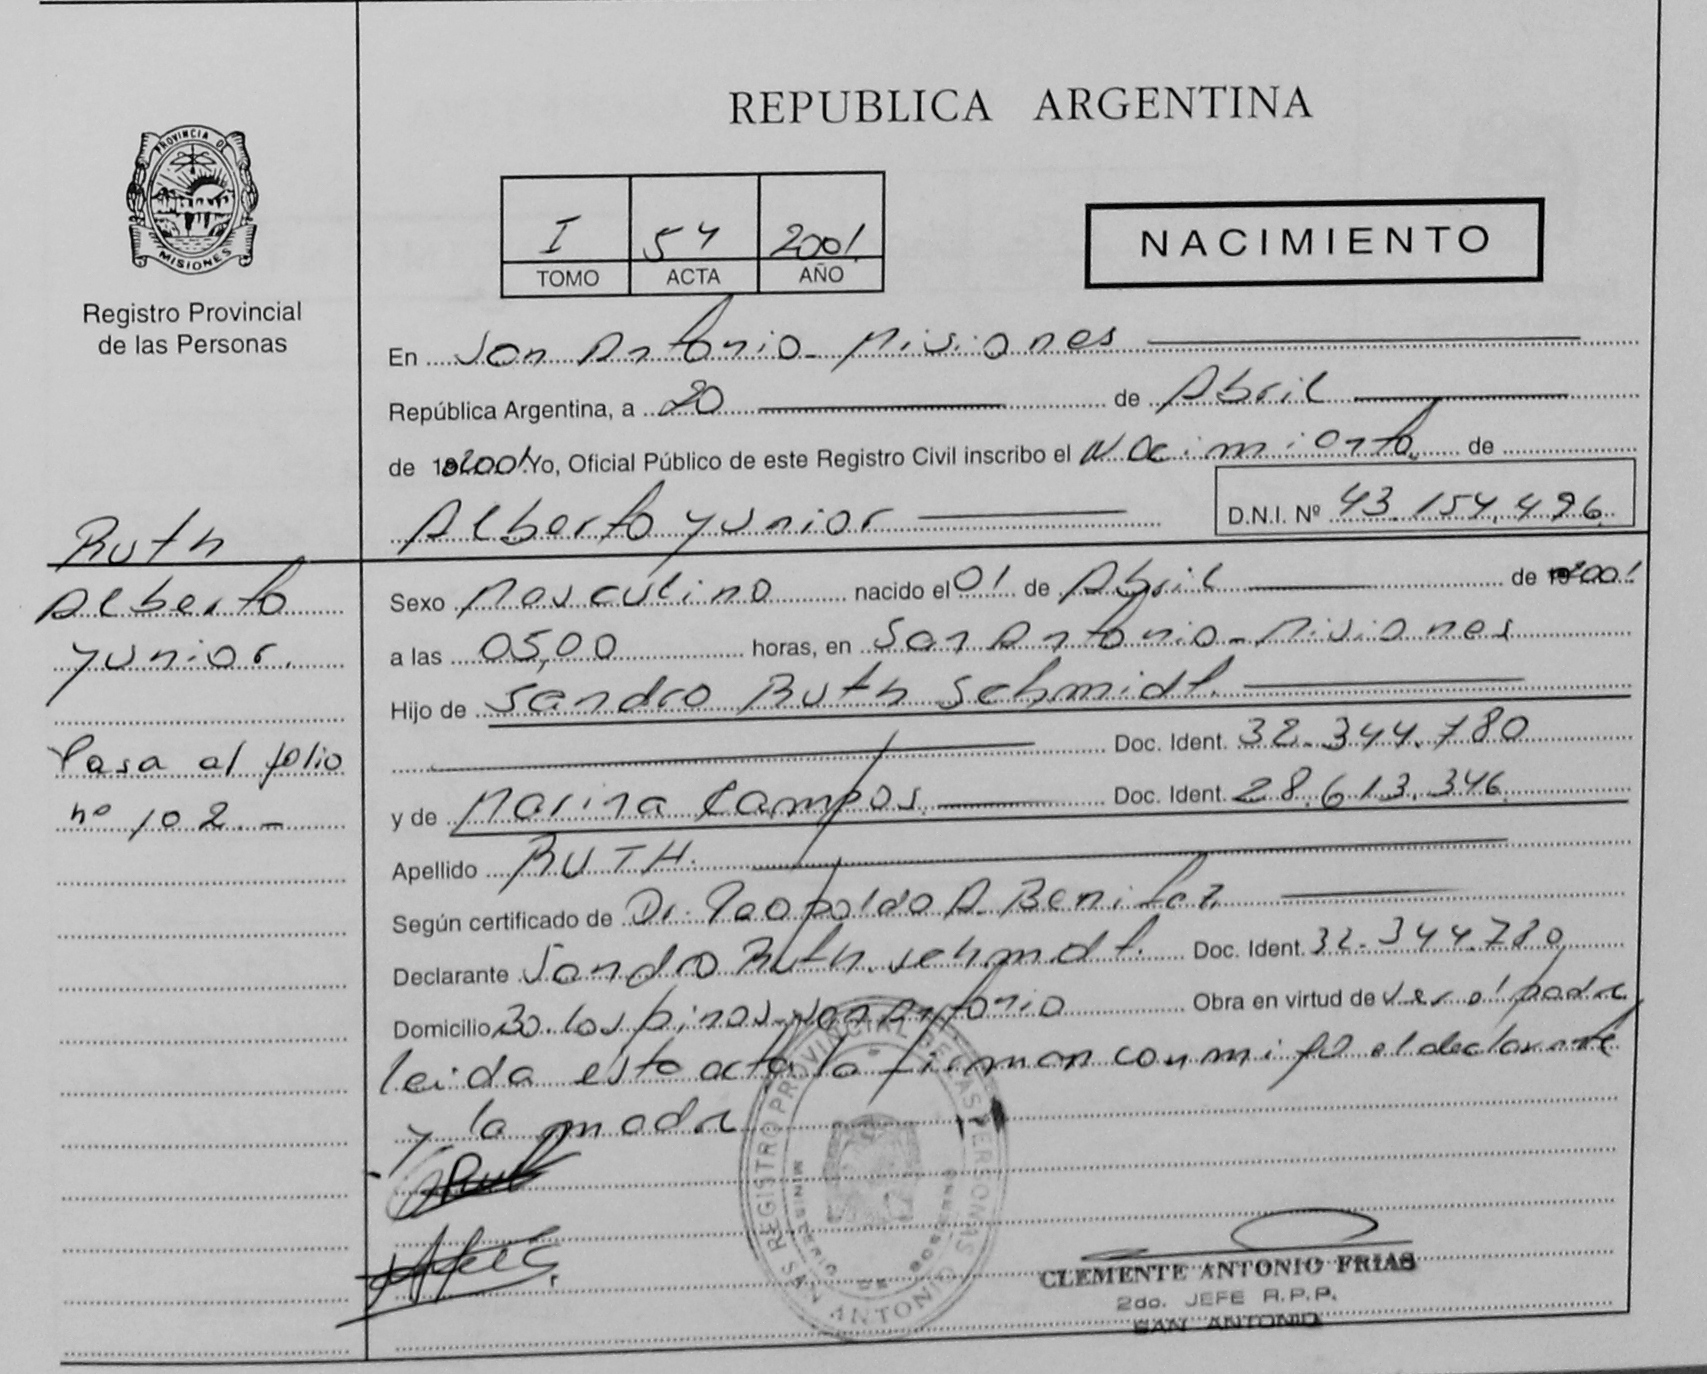 REPUBLICA ARGENTINA
PROVINCIA DE
MISIONES
Registro Provincial
de las Personas
I 54 2001
TOMO ACTA AÑO
NACIMIENTO
En San Antonio - Misiones
República Argentina, a 20 de Abril
de 2001 Yo, Oficial Público de este Registro Civil inscribo el Nacimiento de
Alberto Yunior D.N.I. Nº 43.154.496
Ruth
Alberto
Yunior.
Pasa al folio
nº 102.-
Sexo Masculino nacido el 01 de Abril de 2001
a las 05,00 horas, en San Antonio - Misiones
Hijo de Sandro Ruth Schmidt.
Doc. Ident. 32.344.780
y de Marina Campos. Doc. Ident. 28.613.346
Apellido RUTH.
Según certificado de Dr. Leopoldo A. Benitez
Declarante Sandro Ruth Schmdt. Doc. Ident. 32.344.780
Domicilio 30. los pinos San Antonio Obra en virtud de ser el padre
leida esta acta la firman con mi go el declarante
y la madre
REGISTRO PROVINCIAL DE LAS PERSONAS
MINISTERIO DE GOBIERNO
SAN ANTONIO
CLEMENTE ANTONIO FRIAS
2do. JEFE R.P.P.
SAN ANTONIO